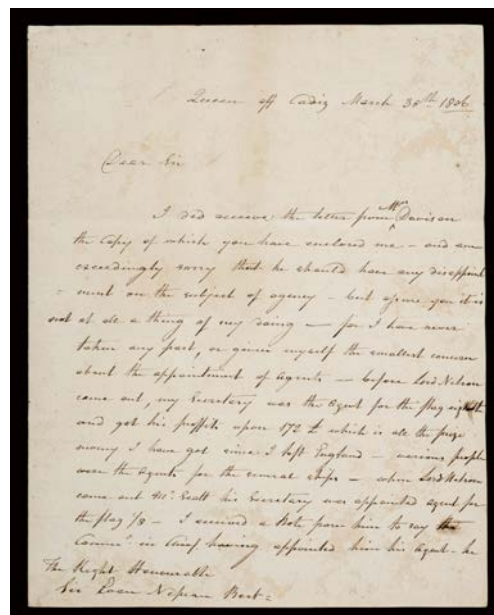 Queen off Cadiz March 30th 1806
Dear Sir
I did receive the letter from Mr Davison
the Copy of which you have enclosed me - and am
exceedingly sorry that he should have any disappoint
= ment on the subject of agency - but assure you it is
not at all a thing of my doing - for I have never
taken any part, or given myself the smallest concern
about the appointment of Agents - before Lord Nelson
came out, my Secretary was the Agent for the flag eighth
and got his proffits upon 172 £ which is all the prize
money I have got since I left England - various people
were the Agents for the several ships - when Lord Nelson
came out Mr. Scott his Secretary was appointed agent for
the flag 1/8 - I received a Note from him to say the
Commr. in Chief having appointed him his Agent - he
The Right Honourable
Sir Evan Nepean Bart =